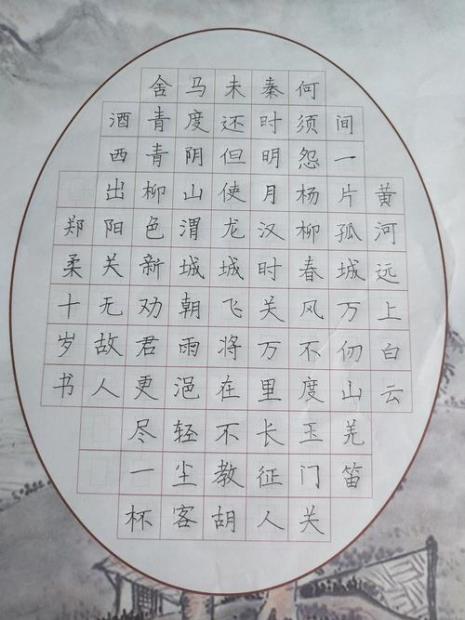 黄河远上白云
间一片孤城万仞山羌笛
何须怨杨柳春风不度玉门关
秦时明月汉时关万里长征人
未还但使龙城飞将在不教胡
马度阴山渭城朝雨浥轻尘客
舍青青柳色新劝君更尽一杯
酒西出阳关无故人
郑柔十岁书